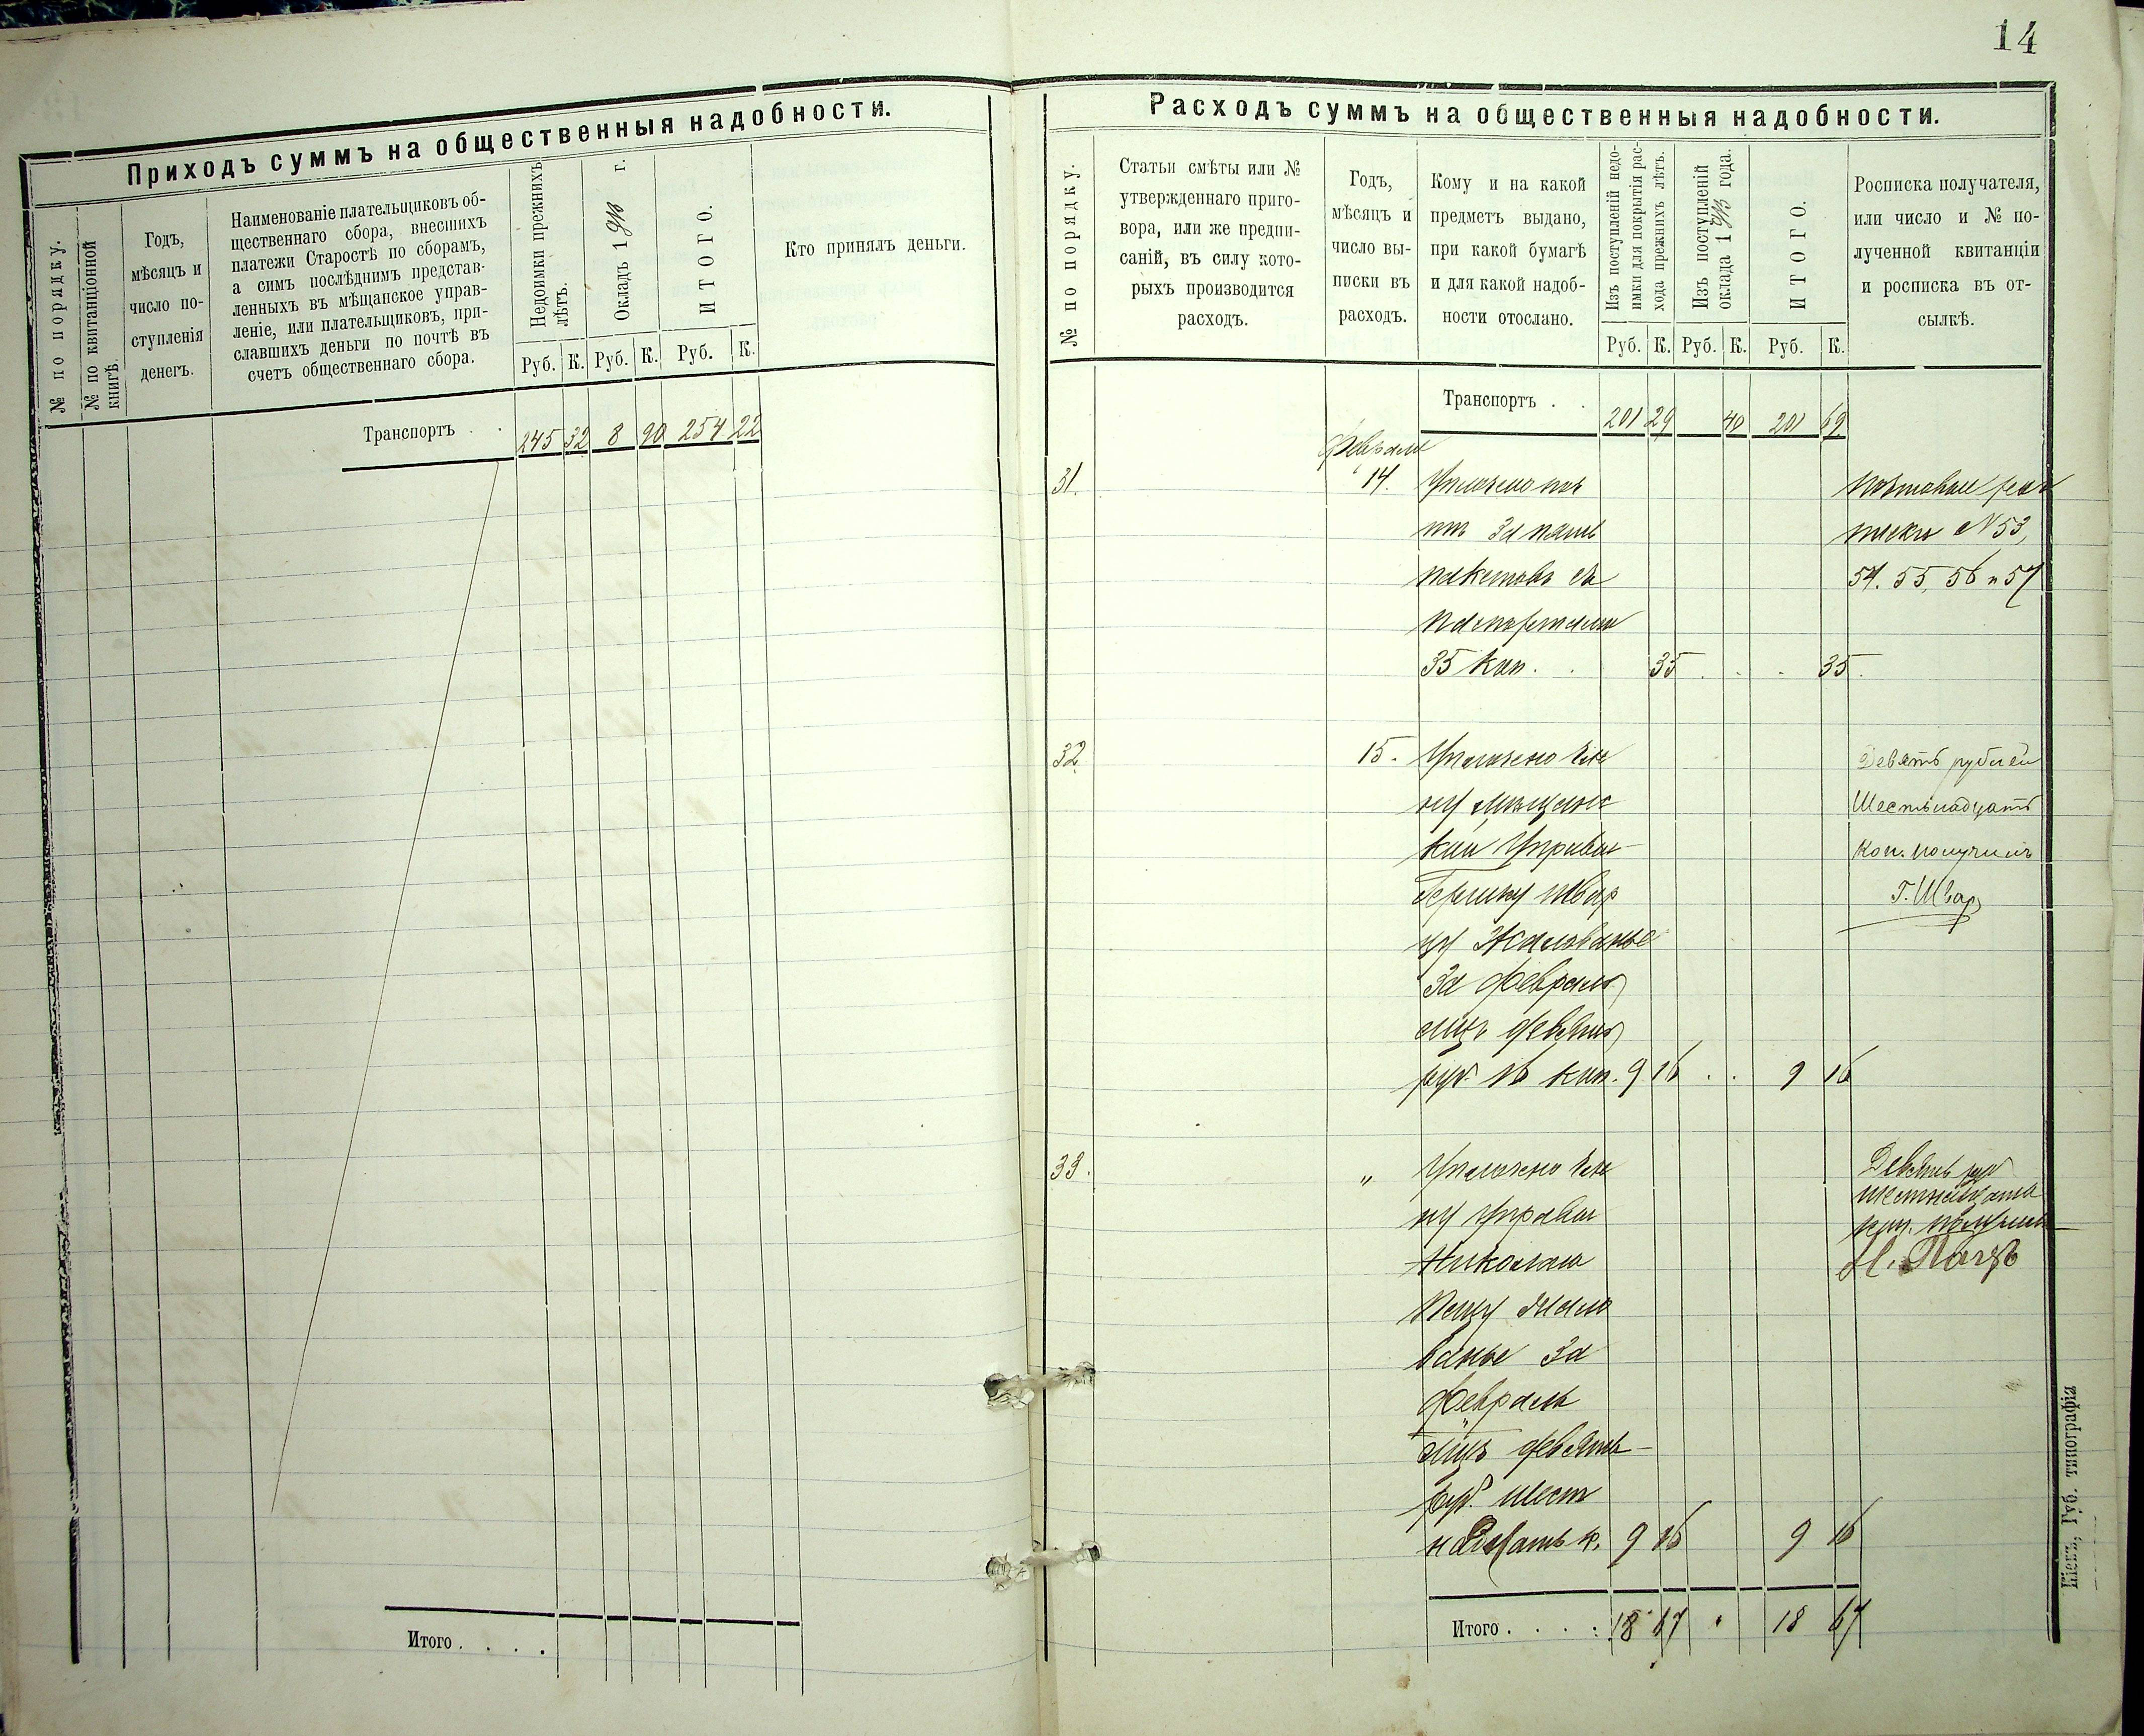 14
Приходъ суммъ на общественныя надобности.
№ по порядку.
№ по квитанціонной книгѣ.
Годъ,
мѣсяцъ и
число по-
ступленія
денегъ.
Наименованіе плательщиковъ об-
щественнаго сбора, внесшихъ
платежи Старостѣ по сборамъ,
а симъ послѣднимъ представ-
ленныхъ въ мѣщанское управ-
леніе, или плательщиковъ, при-
славшихъ деньги по почтѣ въ
счетъ общественнаго сбора.
Недоимки прежнихъ
лѣтъ.
Окладъ 1913 г.
ИТОГО.
Кто принялъ деньги.
Руб. К. Руб. К. Руб. К.
Транспортъ . . 245 32 8 90 254 22
Итого . . . .
Расходъ суммъ на общественныя надобности.
№ по порядку.
Статьи смѣты или №
утвержденнаго приго-
вора, или же предпи-
саній, въ силу кото-
рыхъ производится
расходъ.
Годъ,
мѣсяцъ и
число вы-
писки въ
расходъ.
Кому и на какой
предметъ выдано,
при какой бумагѣ
и для какой надоб-
ности отослано.
Изъ поступленій недо-
имки для покрытія рас-
хода прежнихъ лѣтъ.
Изъ поступленій
оклада 1913 года.
ИТОГО.
Росписка получателя,
или число и № по-
лученной квитанціи
и росписка въ от-
сылкѣ.
Руб. К. Руб. К. Руб. К.
Транспортъ . . 201 29 40 201 69
Февраля
31. 14. Уплочено поч
за пять
пакетовъ съ
паспортами
35 коп. . 35 . . . 35.
Почтовыя рас
писки № 53,
54. 55, 56 и 57
32. 15. Уплочено Чле
ну мѣщанс
кой Управы
Гершну Швар
цу Жалованье
за Февраль
мцъ девять
руб. 16 коп. 9 16 . . 9 16
Девять рублей
Шестьнадцать
коп. получилъ
Г. Шварц
33. " Уплочено Чле
ну Управы
Николаю
Пецу жало
ванье за
Февраль
мцъ девять
руб. шест
надцать к. 9 16 9 16
Девять руб
шестнадцать
коп. получилъ
Н. Пецъ
Итого . . . . 18 67 . 18 67
Губ. типографія